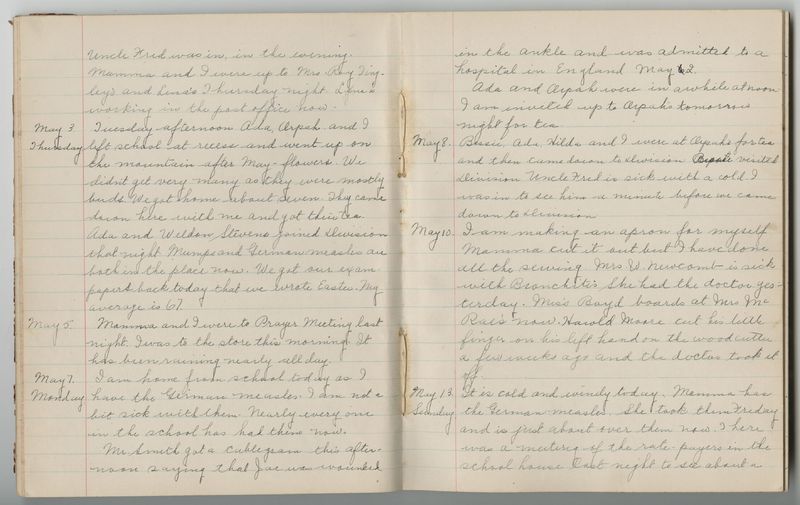 Uncle Fred was in, in the evening.
Mamma and I were up to Mrs. Roy Ting-
ley's and Lena's Thursday night. Lena is
working in the post office now.
May 3. Tuesday afternoon Ada, Arpah and I
Thursday left school at recess and went up on
the mountain after May-flowers. We
didn't get very many as they were mostly
buds. We got home about seven. They came
down here with me and got their tea.
Ada and Weldon Stevens joined Division
that night. Mumps and German measles are
both in the place now. We got our exam
papers back today that we wrote Easter. My
average is 67.
May 5. Mamma and I were to Prayer Meeting last
night. I was to the store this morning. It
has been raining nearly all day.
May 7. I am home from school today as I
Monday have the German measles. I am not a
bit sick with them. Nearly every one
in the school has had them now.
Mr. Smith got a cablegram this after-
noon saying that Joe was wounded
in the ankle and was admitted to a
hospital in England May 2.
Ada and Arpah were in awhile at noon.
I am invited up to Arpah's tomorrow
night for tea.
May 8. Bessie, Ada, Hilda and I were at Arpahs for tea
and then came down to Division. Bessie visited
Division. Uncle Fred is sick with a cold. I
was in to see him a minute before we came
down to Division.
May 10. I am making an apron for myself
Mamma cut it out but I have done
all the sewing. Mrs. W. Newcomb is sick
with Bronchitis. She had the doctor yes-
terday. Miss Boyd boards at Mrs. Mc
Rae's now. Harold Moore cut his little
finger on his left hand on the woodcutter
a few weeks ago and the doctor took it
off.
May 13. It is cold and windy today. Mamma has
Sunday the German measles. She took them Friday
and is just about over them now. There
was a meeting of the rate-payers in the
school house last night to see about a